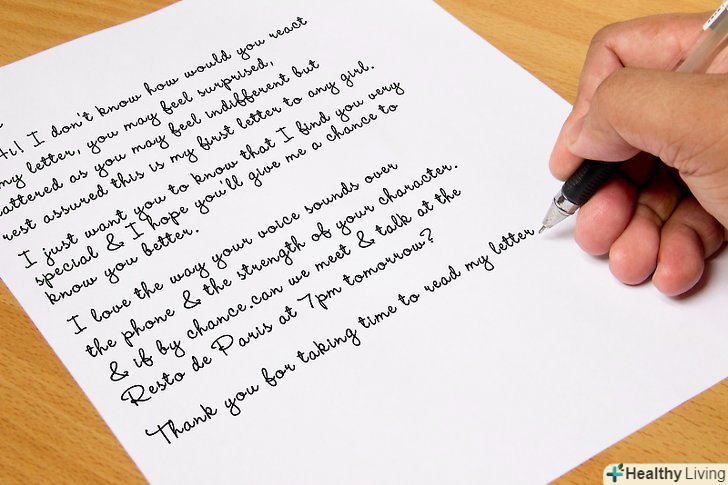 Hi! I don't know how would you react
my letter, you may feel surprised,
flattered as you may feel indifferent but
rest assured this is my first letter to any girl.
I just want you to know that I find you very
special & I hope you'll give me a chance to
know you better.
I love the way your voice sounds over
the phone & the strength of your character.
& if by chance.can we meet & talk at the
Resto de Paris at 7pm tomorrow?
Thank you for taking time to read my letter
Healthy Living